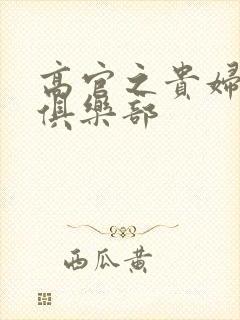 高官之貴婦
俱樂部
西瓜黄